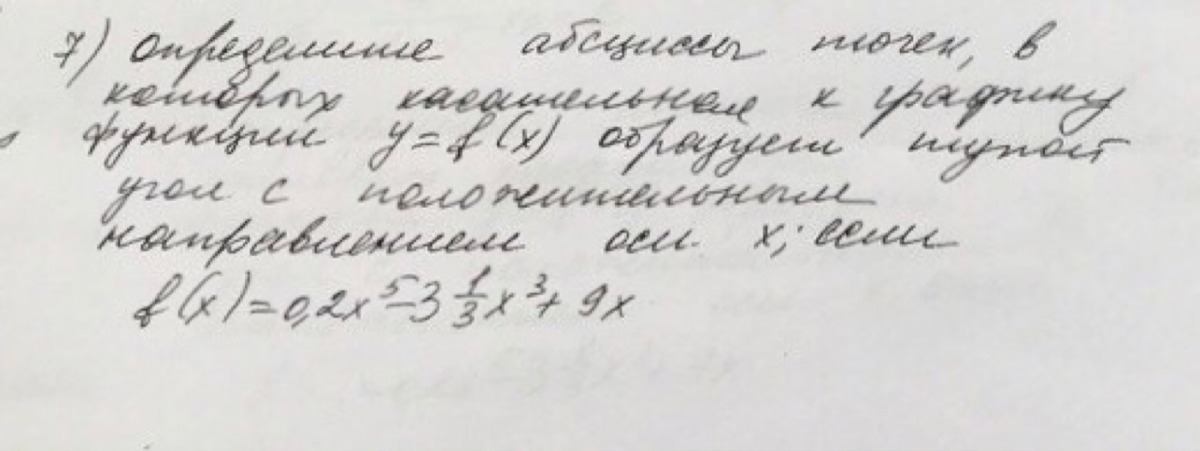 7) определите абсциссы точек, в
которых касательная к графику
функции y = f(x) образует тупой
угол с положительным
направлением оси x; если
f(x) = 0,2x⁵ - 3 1/3 x³ + 9x